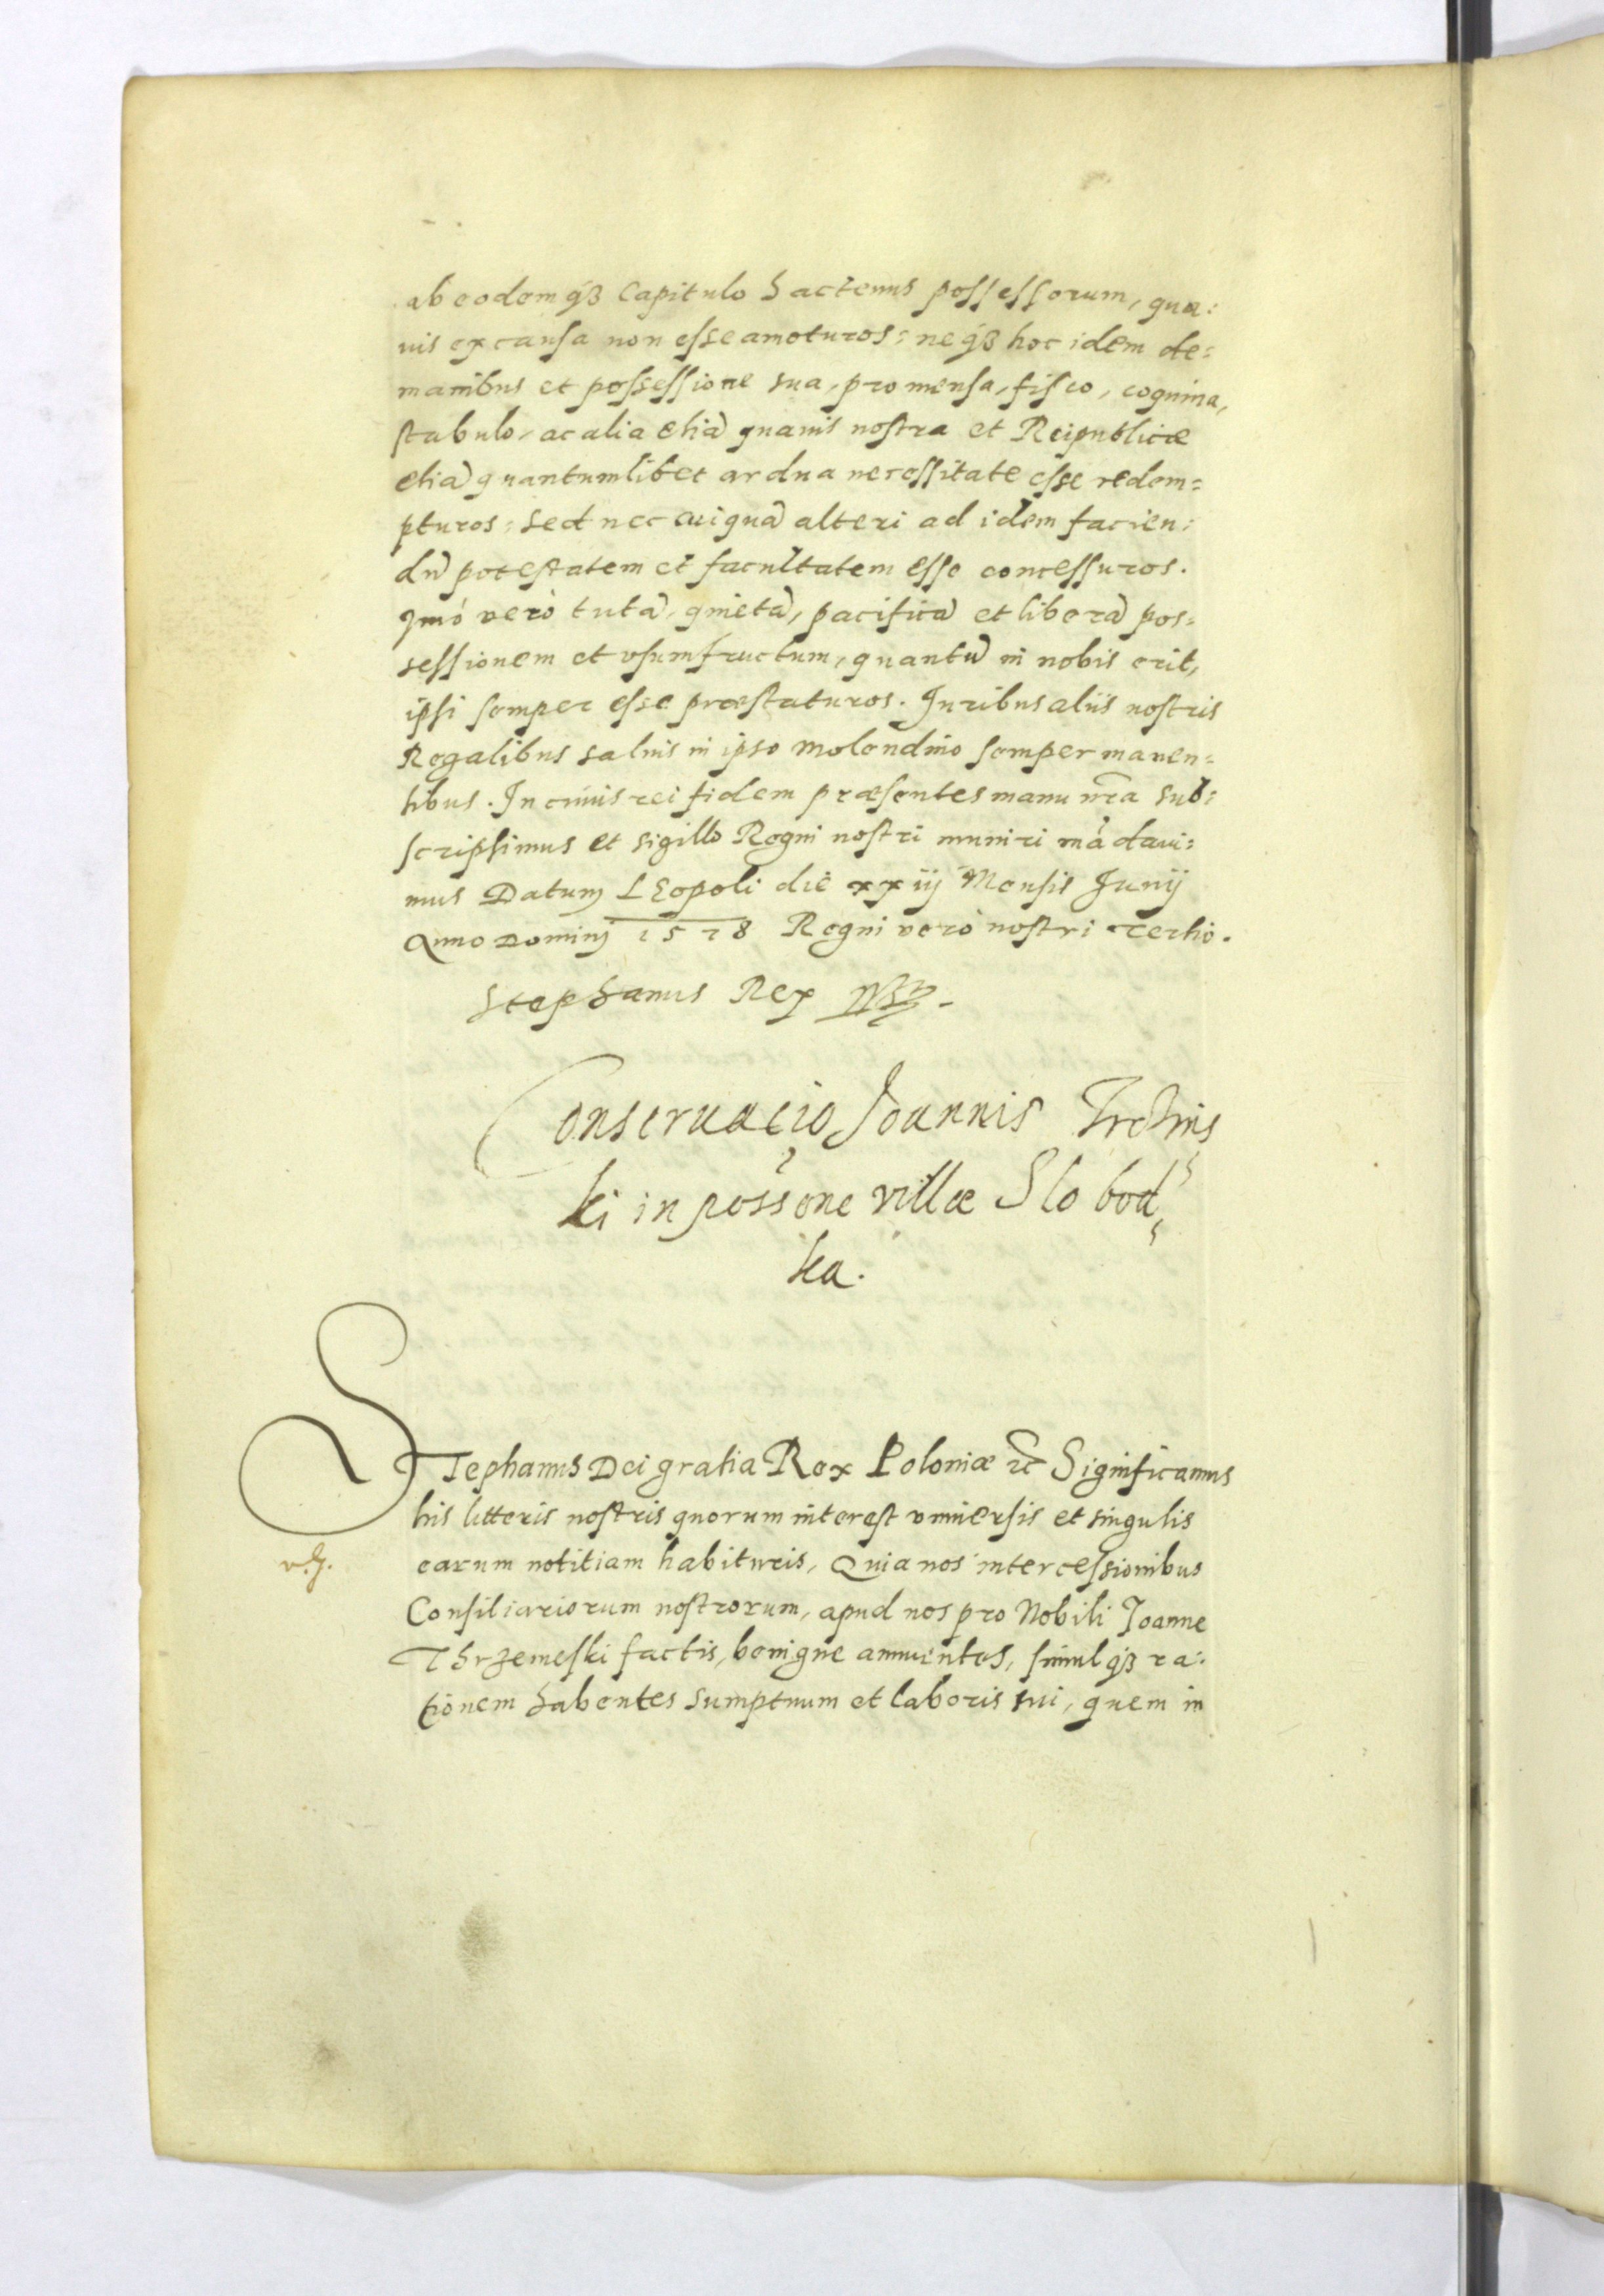 ab eodemq́ꝫ Capitulo hactenus possessorum, qua:
uis ex causa non esse amoturos: neq́ꝫ hoc idem de:
manibus et possessione sua, pro mensa, fisco, coquina,
stabulo, ac alia etiã quauis nostra et Reipublicæ
etiã quantumlibet ardua necessitate esse redem=
pturos: sed nec cuiquã alteri ad idem facien:
dũ potestatem et facultatem esse concessuros.
Imò verò tutã, quietã, pacificã et liberã pos=
sessionem et vsumfructum, quantũ in nobis erit,
ipsi semper esse præstaturos. Iuribus aliis nostris
Regalibus saluis in ipso molendino semper manen=
tibus. In cuius rei fidem præsentes manu nr̃a sub:
scripsimus et sigillo Regni nostri muniri mãdaui:
mus Datum LEopoli die xxiij Mensis Junij
Anno Dominj 1578 Regni verò nostri Tertio.
Stephanus Rex
Conseruacio Joannis
ki in possone villæ Slobod
ka.
STephanus Dei gratia Rex Poloniæ ꝛc̃ Significamus
his litteris nostris quorum interest vniuersis et singulis
earum notitiam habituris, Quia nos intercessionibus
Consiliariorum nostrorum, apud nos pro Nobili Joanne
Thrzemeski factis, benigne annuentes, simulq́ꝫ ra:
tionem habentes sumptuum et laboris sui, quem in